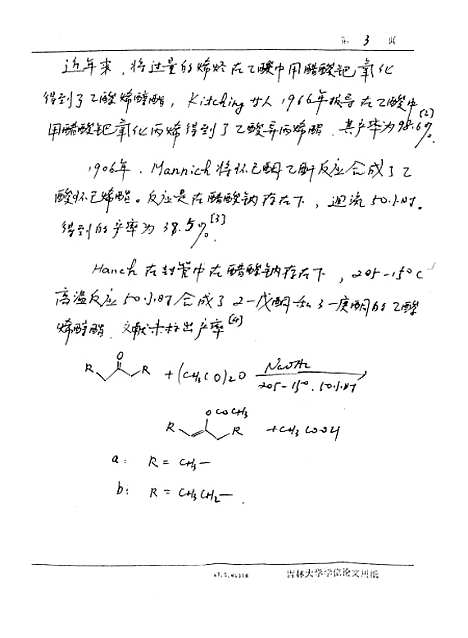 第 3 页
近年来，将过量的烯烃在乙酸中用醋酸钯氧化
得到了乙酸烯醇酯，Kitching 等人1966年报导在乙酸中
用醋酸钯氧化丙烯得到了乙酸异丙烯酯，其产率为98.6%[2]
1906年，Mannich将环己酮乙酐反应合成了乙
酸环己烯酯。反应是在醋酸钠存在下，迴流50小时。
得到的产率为38.5%[3]
Hanch 在封管中在醋酸钠存在下，205-150C
高温反应50小时合成了2-戊酮和3-庚酮的乙酸
烯醇酯，文献未标出产率[4]
O
R R + (CH3CO)2O NaOAc
205-150. 50小时
OCOCH3
R R + CH3COOH
a: R = CH3—
b: R = CH3CH2—.
吉林大学学位论文用纸